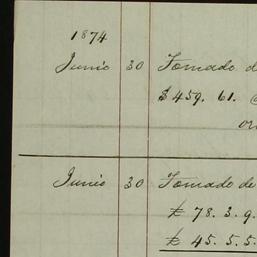 1874
Junio 30 Tomado d
$ 459. 61.
Junio 30 Tomado de
£ 78. 3. 9.
£ 45. 5. 5.